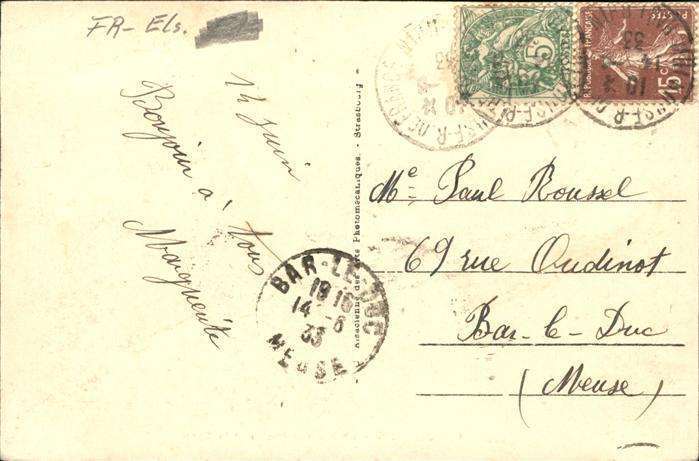 FR- Els.
14 Juin
Bonjour à tous
Marguerite
Alsacienne des Arts Photomécaniques. - Strasbourg
BAR-LE-DUC
19 15
14 - 6
33
MEUSE
5
15c
Me Paul Roussel
69 rue Oudinot
Bar-le-Duc
(Meuse)